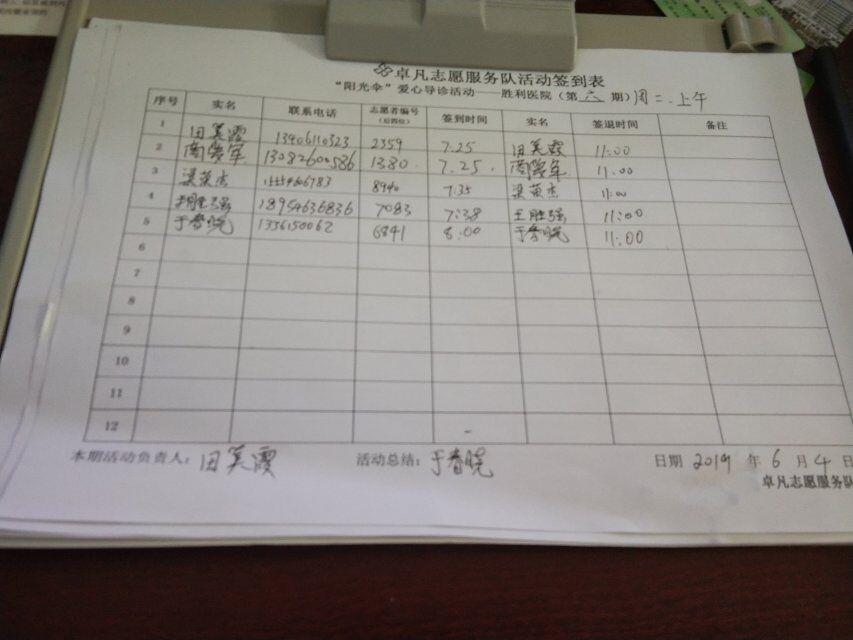 卓凡志愿服务队活动签到表
“阳光伞”爱心导诊活动——胜利医院（第六期）周二.上午
序号 实名 联系电话 志愿者编号（后四位） 签到时间 实名 签退时间 备注
1 田美霞 13406110323 2359 7.25 田美霞 11:00
2 13082600586 1380 7.25. 11.00
3 梁英杰 8940 7:35 梁英杰 11:00
4 王胜强 18954636836 7083 7:38 王胜强 11:00
5 于春晓 1356150062 6841 8:00 于春晓 11.00
6
7
8
9
10
11
12
本期活动负责人：田美霞 活动总结：于春晓 日期 2019 年 6 月 4 日
卓凡志愿服务队